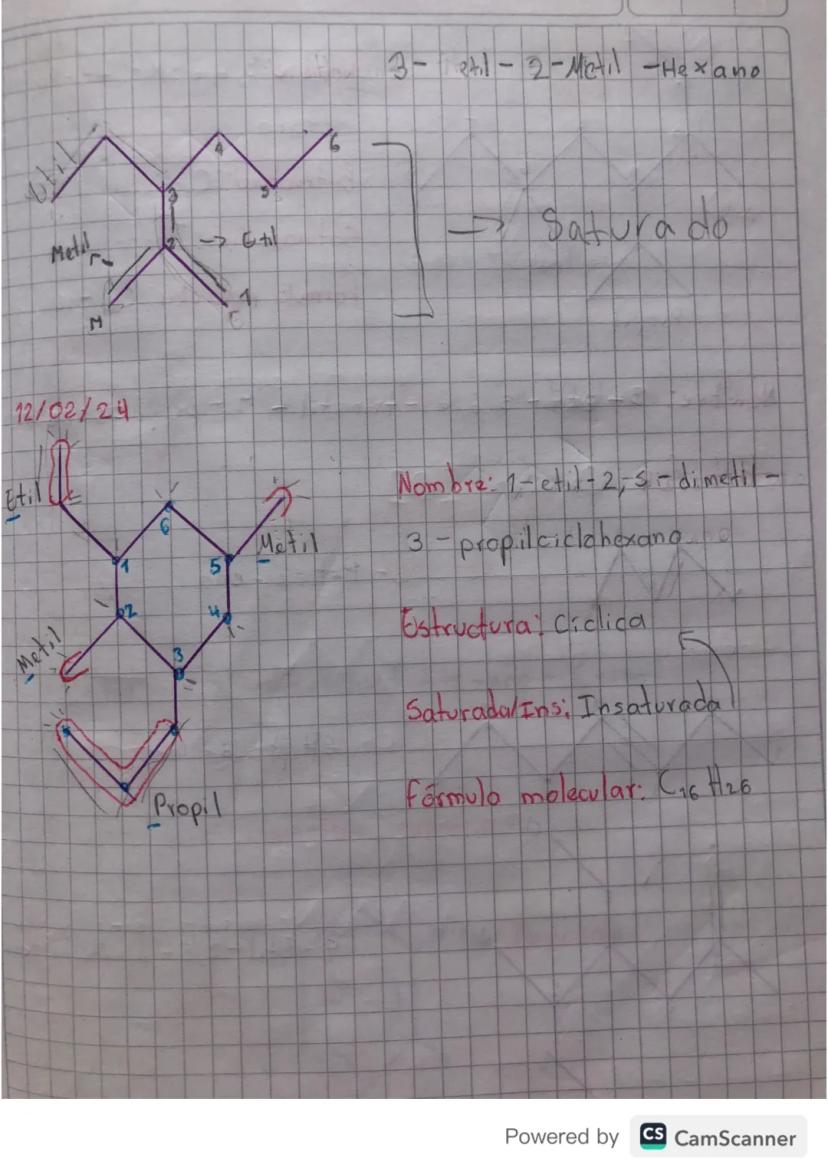 3- etil - 2-Metil -Hexano
Etil
4
6
3
5
2 → Etil
Metil
→ Saturado
1
M
C
12/02/24
Etil
6
Metil
1
5
2
4
Metil
3
Propil
Nombre: 1-etil-2,-5-dimetil-
3-propilciclohexano
Estructura: Cíclica
Saturada/Ins: Insaturada
Fórmulo molecular: C16 H26
Powered by CS CamScanner